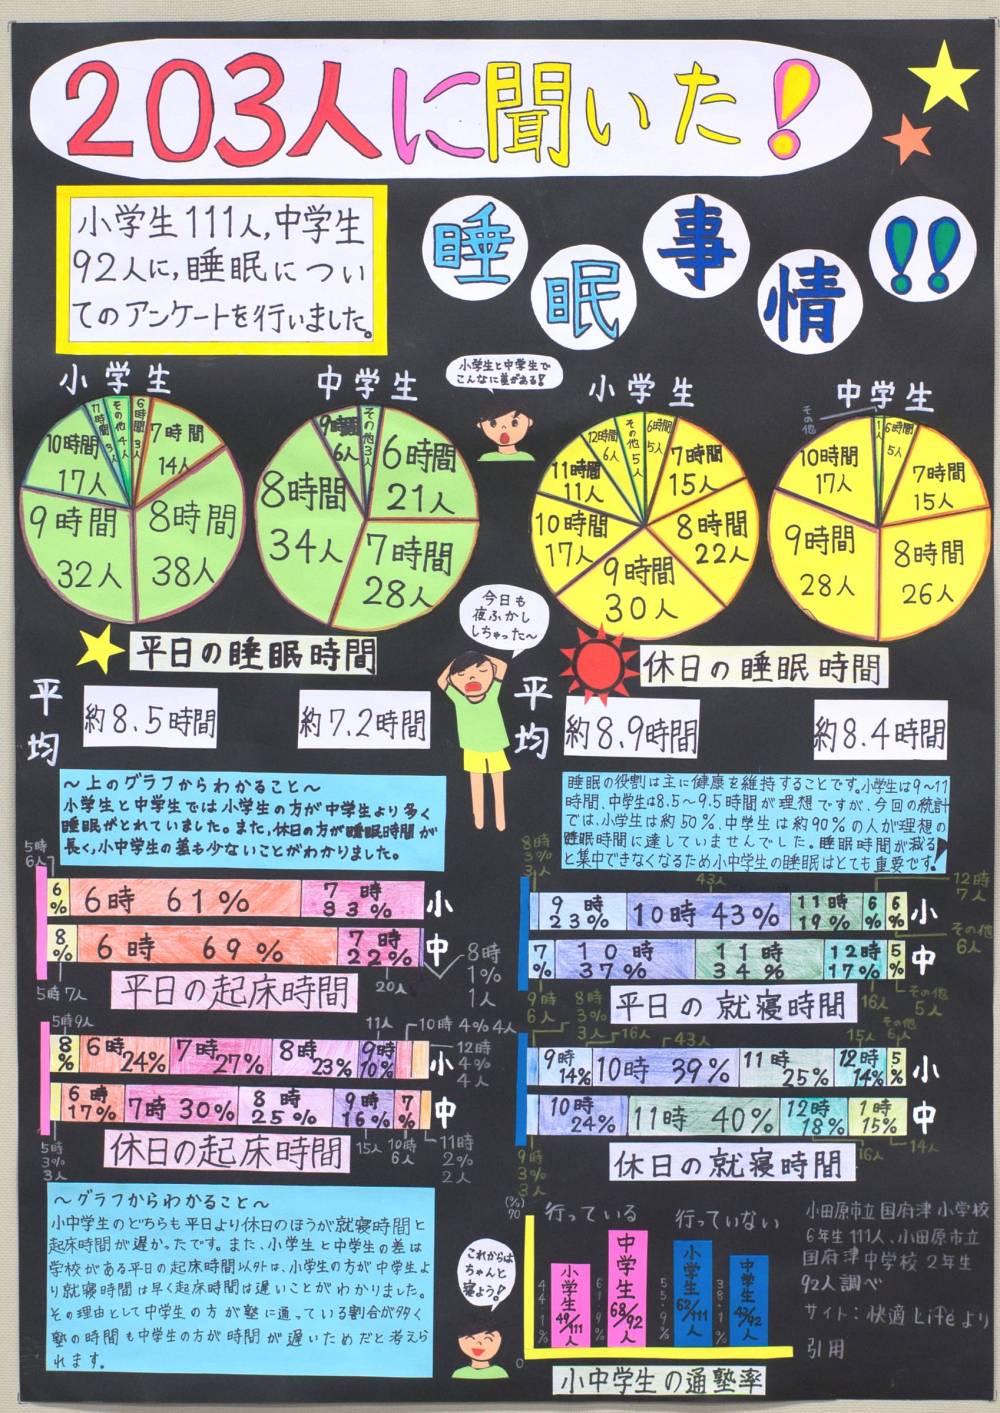 203人に聞いた!
小学生111人,中学生
92人に,睡眠につい
てのアンケートを行いました。
睡眠事情!!
小学生
6時間 3人
7時間 14人
8時間 38人
9時間 32人
10時間 17人
11時間 3人
その他 4人
中学生
6時間 21人
7時間 28人
8時間 34人
9時間 6人
その他 3人
小学生と中学生で
こんなに差がある!!
小学生
6時間 5人
7時間 15人
8時間 22人
9時間 30人
10時間 17人
11時間 11人
12時間 6人
その他 5人
中学生
6時間 5人
7時間 15人
8時間 26人
9時間 28人
10時間 17人
その他 1人
平日の睡眠時間
今日も
夜ふかし
しちゃった~
休日の睡眠時間
平均
約8.5時間
約7.2時間
平均
約8.9時間
約8.4時間
~上のグラフからわかること~
小学生と中学生では小学生の方が中学生より多く
睡眠がとれていました。また、休日の方が睡眠時間が
長く、小中学生の差も少ないことがわかりました。
睡眠の役割は主に健康を維持することです。小学生は9~11
時間、中学生は8.5~9.5時間が理想ですが、今回の統計
では、小学生は約50%、中学生は約90%の人が理想の
睡眠時間に達していませんでした。睡眠時間が減る
と集中できなくなるため小中学生の睡眠はとても重要です。
5時 6人
6% 6時 61% 7時 33% 小
8% 6時 69% 7時 22% 中
5時 7人
20人
8時 1% 1人
平日の起床時間
8時 3% 3人
43人
12時 7人
9時 23% 10時 43% 11時 19% 6% 6% 小
その他 6人
7% 10時 37% 11時 34% 12時 17% 5% 中
9時 6人
16人
その他 5人
平日の就寝時間
5時 9人
11人
10時 4% 4人
8% 6時 24% 7時 27% 8時 23% 9時 10% 小
12時 4% 4人
6時 17% 7時 30% 8時 25% 9時 16% 7% 中
5時 3% 3人
15人
10時 6人
11時 2% 2人
休日の起床時間
8時 3% 3人
16人
43人
15人
その他 6人
9時 14% 10時 39% 11時 25% 12時 14% 5% 小
10時 24% 11時 40% 12時 18% 1時 15% 中
9時 3% 3人
16人
14人
休日の就寝時間
~グラフからわかること~
小中学生のどちらも平日より休日のほうが就寝時間と
起床時間が遅かったです。また、小学生と中学生の差は
学校がある平日の起床時間以外は、小学生の方が中学生よ
り就寝時間は早く起床時間は遅いことがわかりました。
その理由として中学生の方が塾に通っている割合が多く
塾の時間も中学生の方が時間が遅いためだと考えら
れます。
これからは
ちゃんと
寝よう!
(%)
70
0
行っている
行っていない
44.1% 小学生 49/111人
61.9% 中学生 68/92人
55.9% 小学生 62/111人
38.1% 中学生 42/92人
小中学生の通塾率
小田原市立国府津小学校
6年生111人、小田原市立
国府津中学校2年生
92人調べ
サイト:快適Lifeより
引用